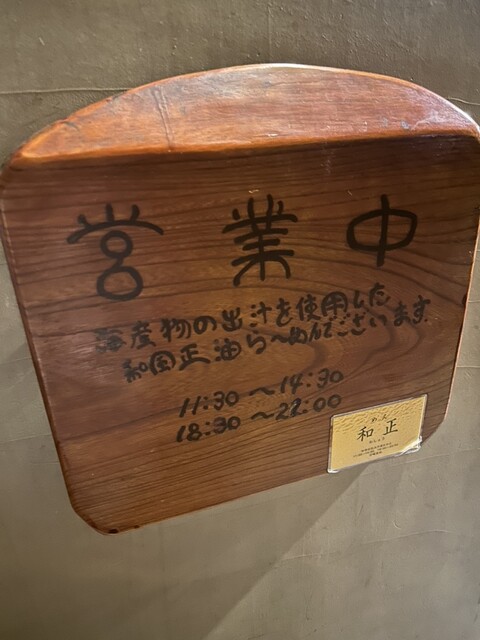 営業中
海産物の出汁を使用した
和風正油らーめんでございます
11:30〜14:30
18:30〜22:00
めん
和正